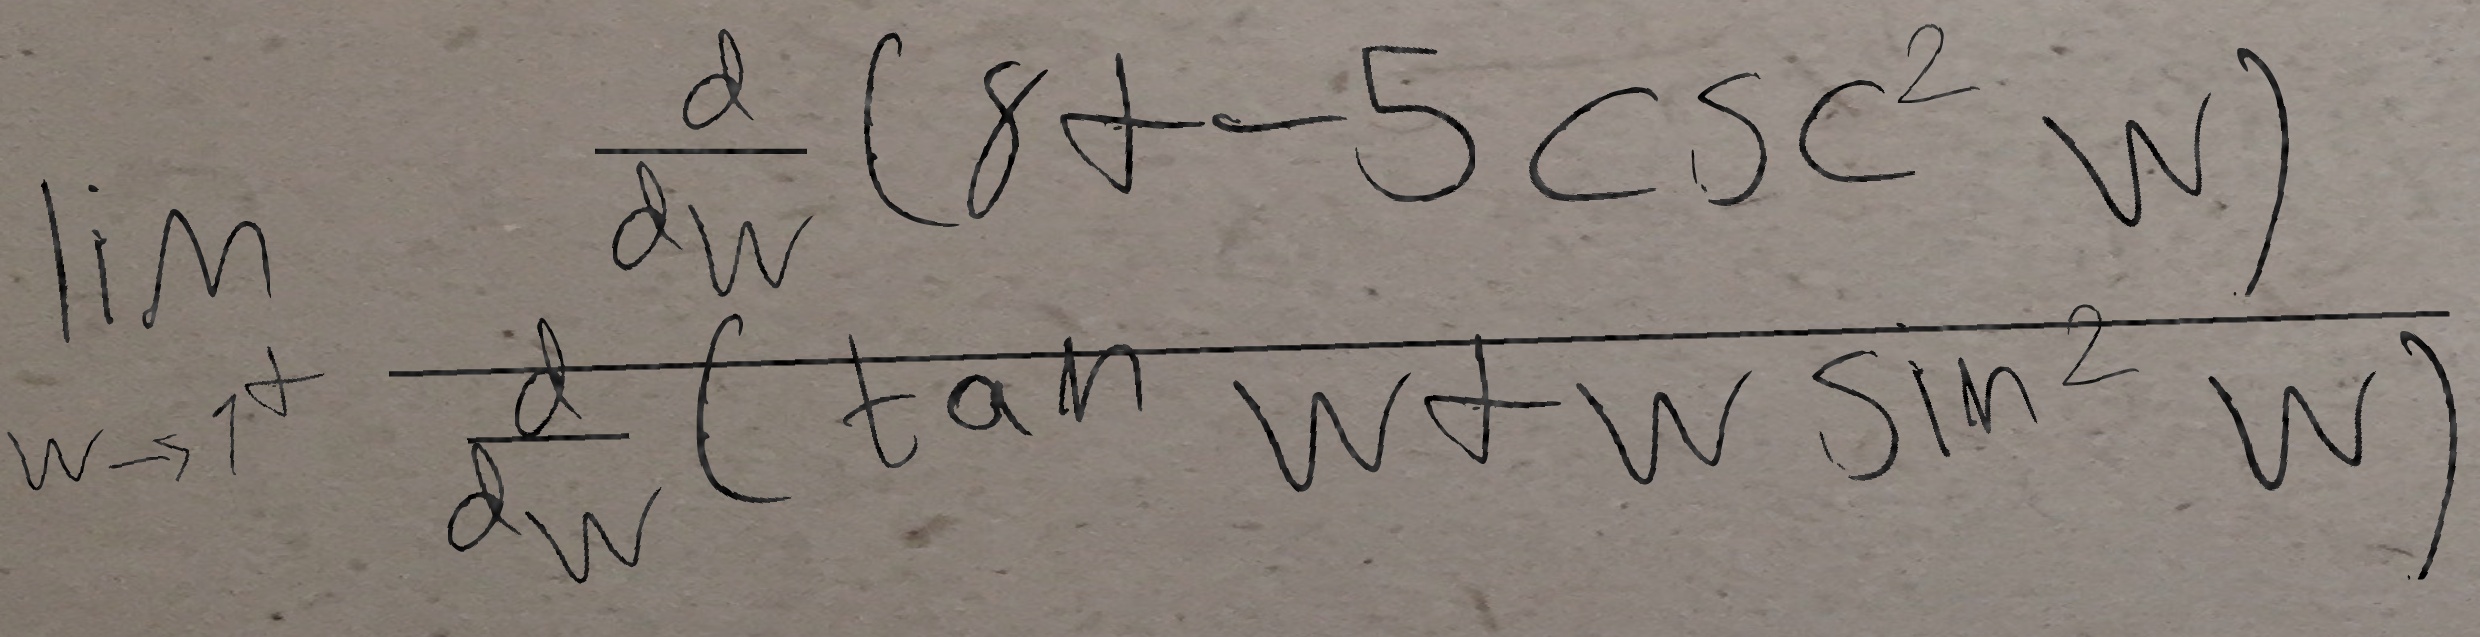 \lim_{w \to 1^+} \frac{\frac{d}{dw}(8+-5\csc^2 w)}{\frac{d}{dw}(\tan w+w\sin^2 w)}